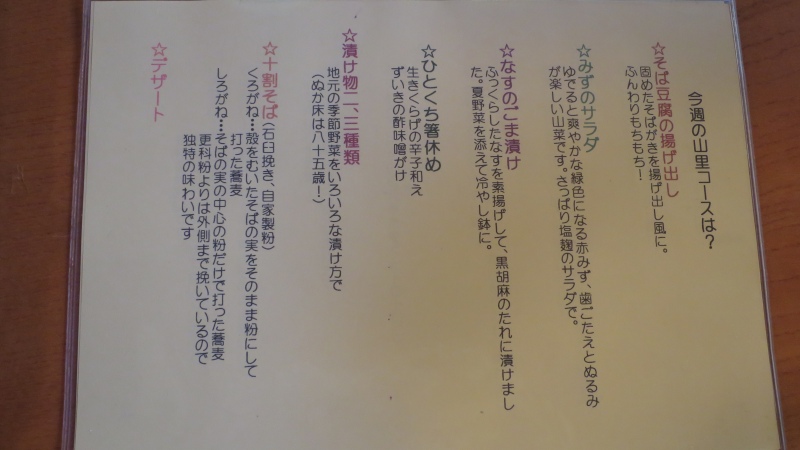 今週の山里コースは？
☆そば豆腐の揚げ出し
固めたそばがきを揚げ出し風に。
ふんわりもちもち！
☆みずのサラダ
ゆでると爽やかな緑色になる赤みず、歯ごたえとぬるみ
が楽しい山菜です。さっぱり塩麹のサラダで。
☆なすのごま漬け
ふっくらしたなすを素揚げして、黒胡麻のたれに漬けまし
た。夏野菜を添えて冷やし鉢に。
☆ひとくち箸休め
生きくらげの辛子和え
ずいきの酢味噌がけ
☆漬け物二、三種類
地元の季節野菜をいろいろな漬け方で
（ぬか床は八十五歳！）
☆十割そば（石臼挽き、自家製粉）
くろがね…殻をむいたそばの実をそのまま粉にして
打った蕎麦
しろがね…そばの実の中心の粉だけで打った蕎麦
更科粉よりは外側まで挽いているので
独特の味わいです
☆デザート